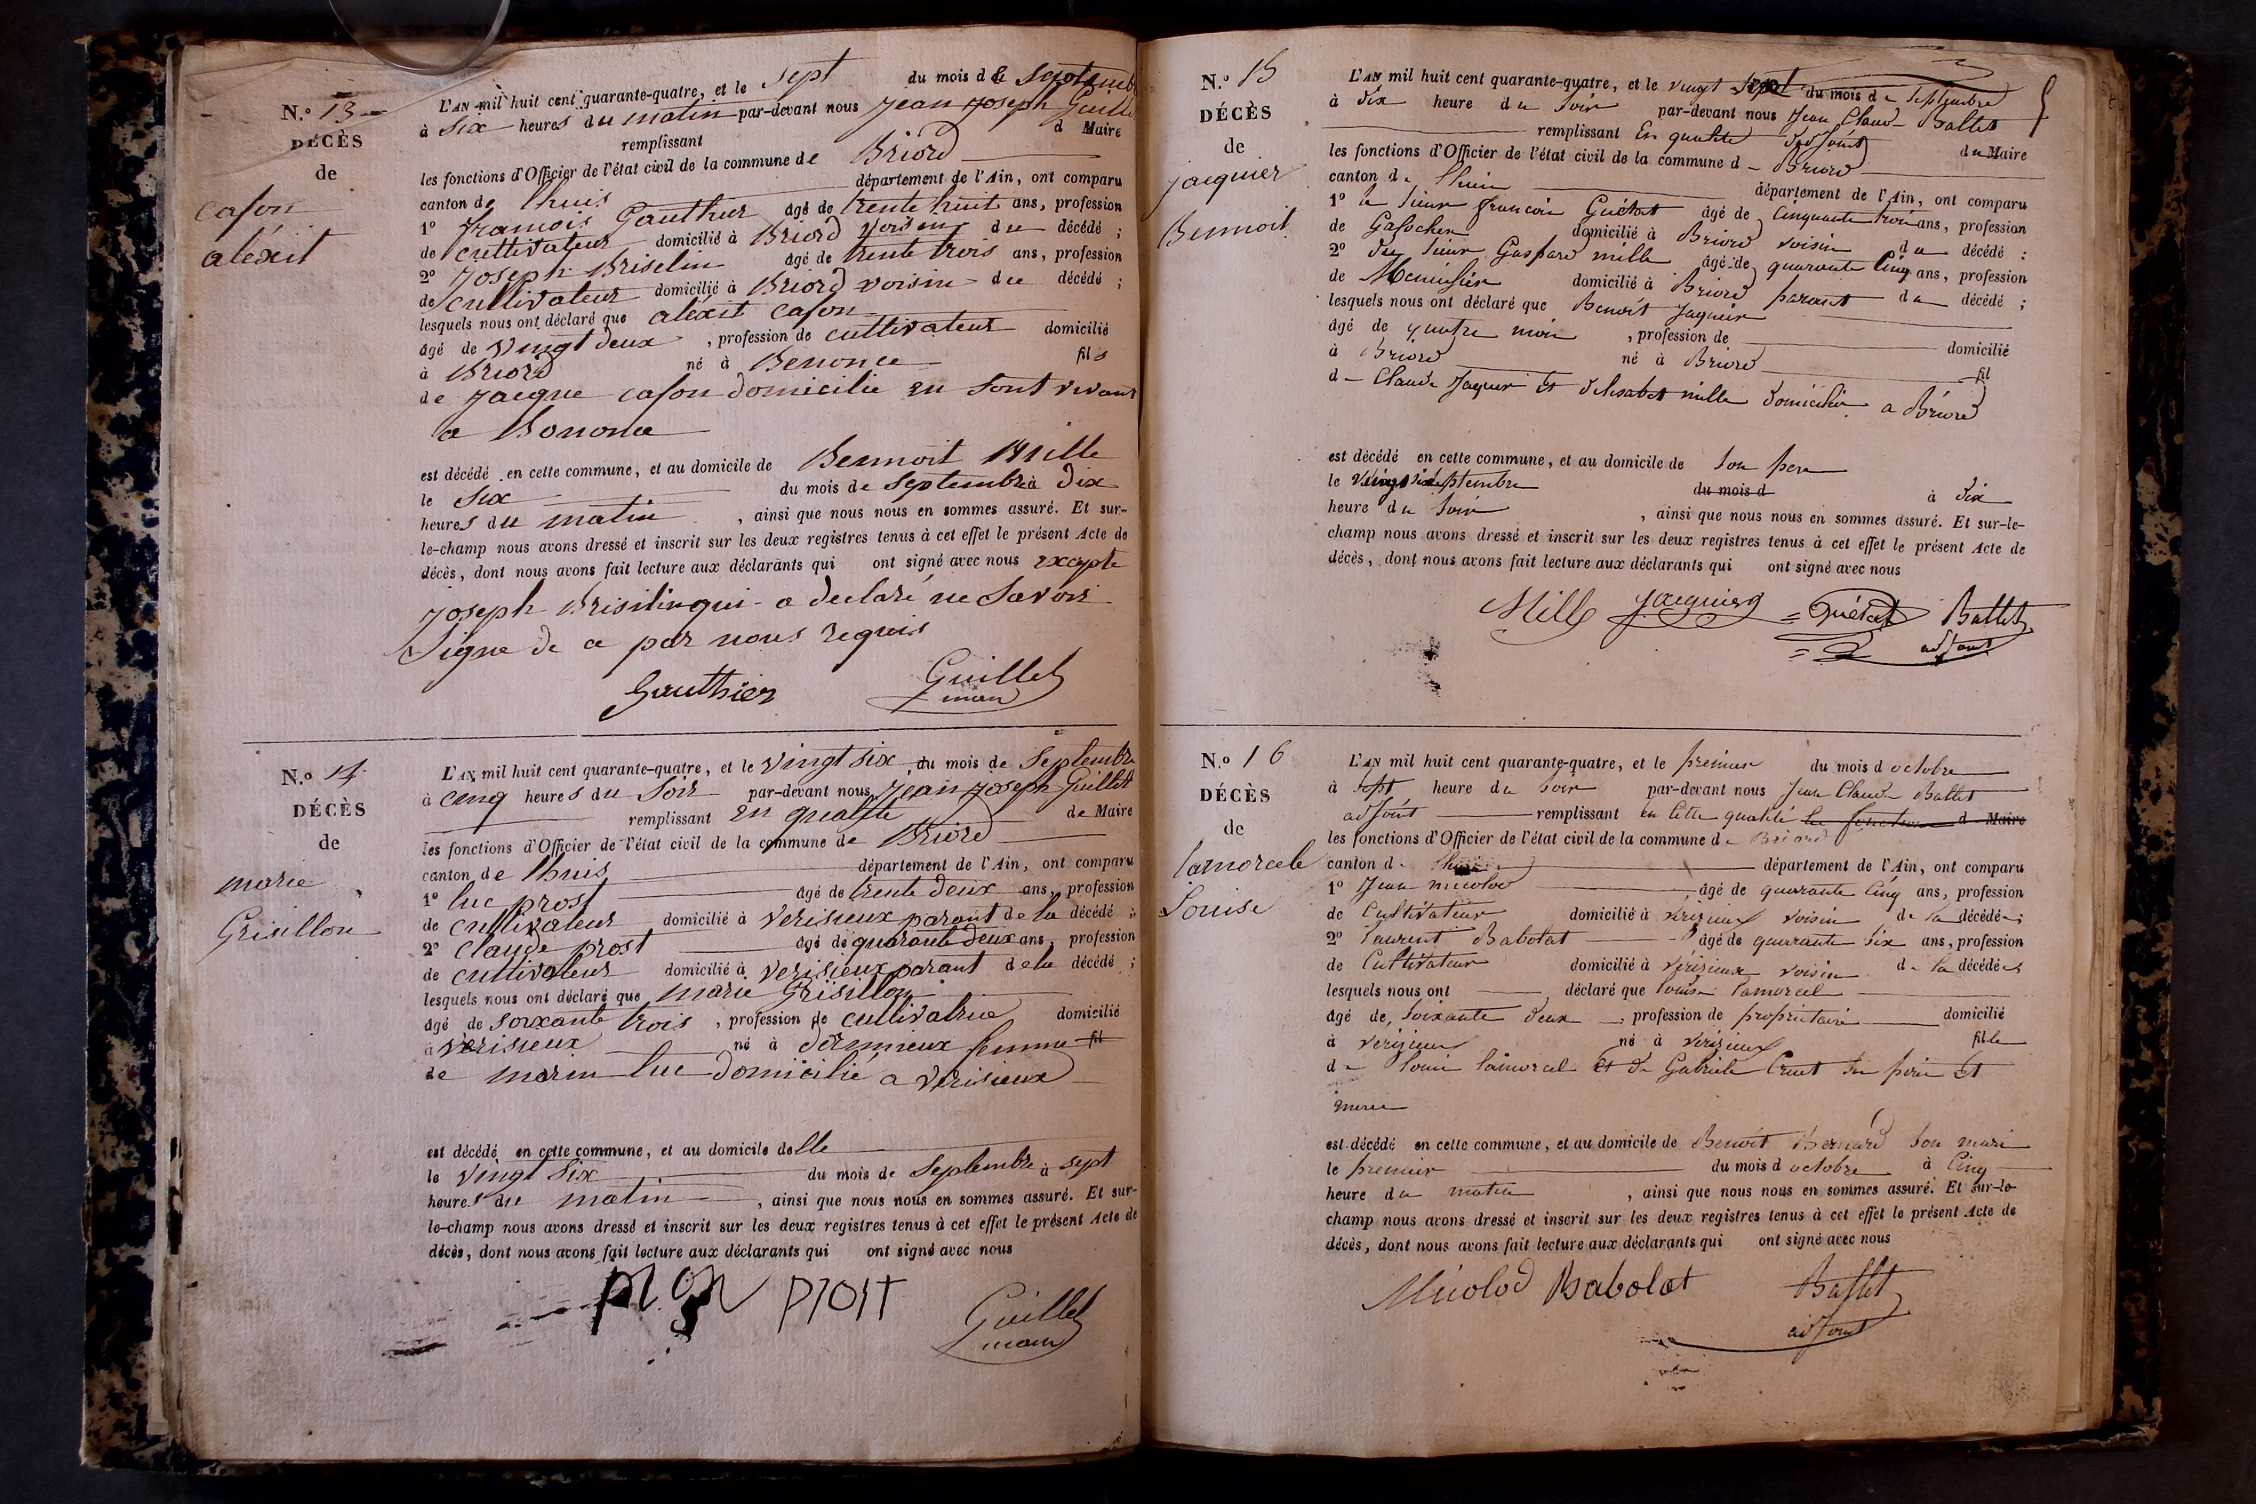 N.o 13
DÉCÈS
de
cason
aléxit
L'AN mil huit cent quarante-quatre, et le sept du mois de Septembre
à Six heures du matin par-devant nous jean joseph Guillet
remplissant d Maire
les fonctions d'Officier de l'état civil de la commune de Briord
canton de lhuis département de l'Ain, ont comparu
1o francois Gauthier âgé de trente huit ans, profession
de cultivateur domicilié à Briord voisin du décédé ;
2o joseph Briselin âgé de trente trois ans, profession
de cultivateur domicilié à Briord voisin du décédé ;
lesquels nous ont déclaré que aléxit cason
âgé de vingt deux , profession de cultivateur domicilié
à Briord né à Benonce fils
de jacque cason domicilie en sont vivant
a Bononce
est décédé en cette commune, et au domicile de Bennoit Mille
le six du mois de septembre à dix
heures du matin , ainsi que nous nous en sommes assuré. Et sur-
le-champ nous avons dressé et inscrit sur les deux registres tenus à cet effet le présent Acte de
décès, dont nous avons fait lecture aux déclarants qui ont signé avec nous excepte
joseph Brisilin qui a declaré ne savoir
signe de ce par nous requis
Gauthier Guillet
maire
N.o 14
DÉCÈS
de
marie
Grisillon
L'AN mil huit cent quarante-quatre, et le vingt six du mois de Septembre
à cinq heures du soir par-devant nous jean joseph Guillet
remplissant en qualite de Maire
les fonctions d'Officier de l'état civil de la commune de Briord
canton de lhuis département de l'Ain, ont comparu
1o luc prost âgé de trente deux ans, profession
de cultivateur domicilié à verisieux parant de la décédé ;
2o claude prost âgé de quarante deux ans, profession
de cultivateur domicilié à verisieux parant de la décédé ;
lesquels nous ont déclaré que marie Grisillon
âgé de soixante trois , profession de cultivatrice domicilié
à verisieux né à dermieux femme fil
de morin luc domicilié a verisieux
est décédé en cette commune, et au domicile delle
le vingt six du mois de septembre à sept
heures du matin , ainsi que nous nous en sommes assuré. Et sur-
le-champ nous avons dressé et inscrit sur les deux registres tenus à cet effet le présent Acte de
décès, dont nous avons fait lecture aux déclarants qui ont signé avec nous
prost Guillet
maire
N.o 15
DÉCÈS
de
jacquier
Bennoit
L'AN mil huit cent quarante-quatre, et le vingt sept du mois de septembre
à dix heure du soir par-devant nous Jean Claude Ballet
remplissant en qualité d'adjoint du Maire
les fonctions d'Officier de l'état civil de la commune d Briord
canton de lhuis département de l'Ain, ont comparu
1o le sieur francois Guétat âgé de cinquante trois ans, profession
de domicilié à Briord voisin du décédé ;
2o du sieur Gaspard mille âgé de quarante cinq ans, profession
de Menuisier domicilié à Briord parant du décédé ;
lesquels nous ont déclaré que Benoit Jaquier
âgé de quatre mois , profession de domicilié
à Briord né à Briord fil
d Claude Jaquier et delisabet mille domicilié a Briord
est décédé en cette commune, et au domicile de son pere
le vingt septembre du mois d à dix
heure du soir , ainsi que nous nous en sommes assuré. Et sur-le-
champ nous avons dressé et inscrit sur les deux registres tenus à cet effet le présent Acte de
décès, dont nous avons fait lecture aux déclarants qui ont signé avec nous
Mille jacquier Guétat Ballet
adjoint
N.o 16
DÉCÈS
de
lamorcele
Louise
L'AN mil huit cent quarante-quatre, et le premier du mois d octobre
à sept heure du soir par-devant nous Jean Claude Ballet
adjoint remplissant en cette qualité les fonctions d Maire
les fonctions d'Officier de l'état civil de la commune de Briord
canton de lhuis département de l'Ain, ont comparu
1o Jean micolod âgé de quarante cinq ans, profession
de Cultivateur domicilié à vérizieux voisin de la décédé ;
2o Laurent Babolat âgé de quarante six ans, profession
de Cultivateur domicilié à vérizieux voisin de la décédé
lesquels nous ont déclaré que louise lamorcel
âgé de soixante deux , profession de propriétaire domicilié
à verizieux né à verizieux fille
de louis lamorcel et de Gabriele Cruet ses père et
mere
est décédé en cette commune, et au domicile de Benoit Bernard son mari
le premier du mois d octobre à cinq
heure du matin , ainsi que nous nous en sommes assuré. Et sur-le-
champ nous avons dressé et inscrit sur les deux registres tenus à cet effet le présent Acte de
décès, dont nous avons fait lecture aux déclarants qui ont signé avec nous
Micolod Babolat Ballet
adjoint